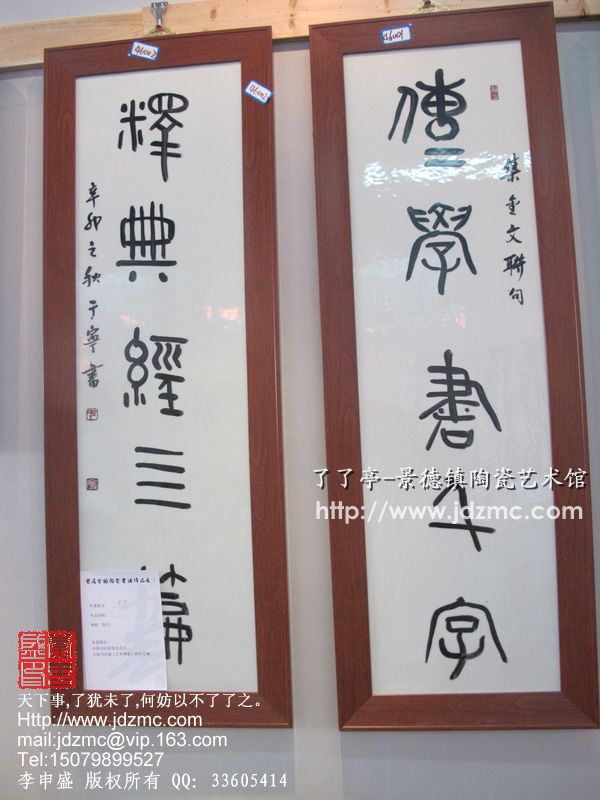 46001
傳學書千字
集金文聯句
46002
46002
釋典經三篇
辛卯之秋于寧書
了了亭-景德镇陶瓷艺术馆
http://www.jdzmc.com
天下事,了犹未了,何妨以不了了之。
Http://www.jdzmc.com
mail:jdzmc@vip.163.com
Tel:15079899527
李申盛 版权所有 QQ: 33605414